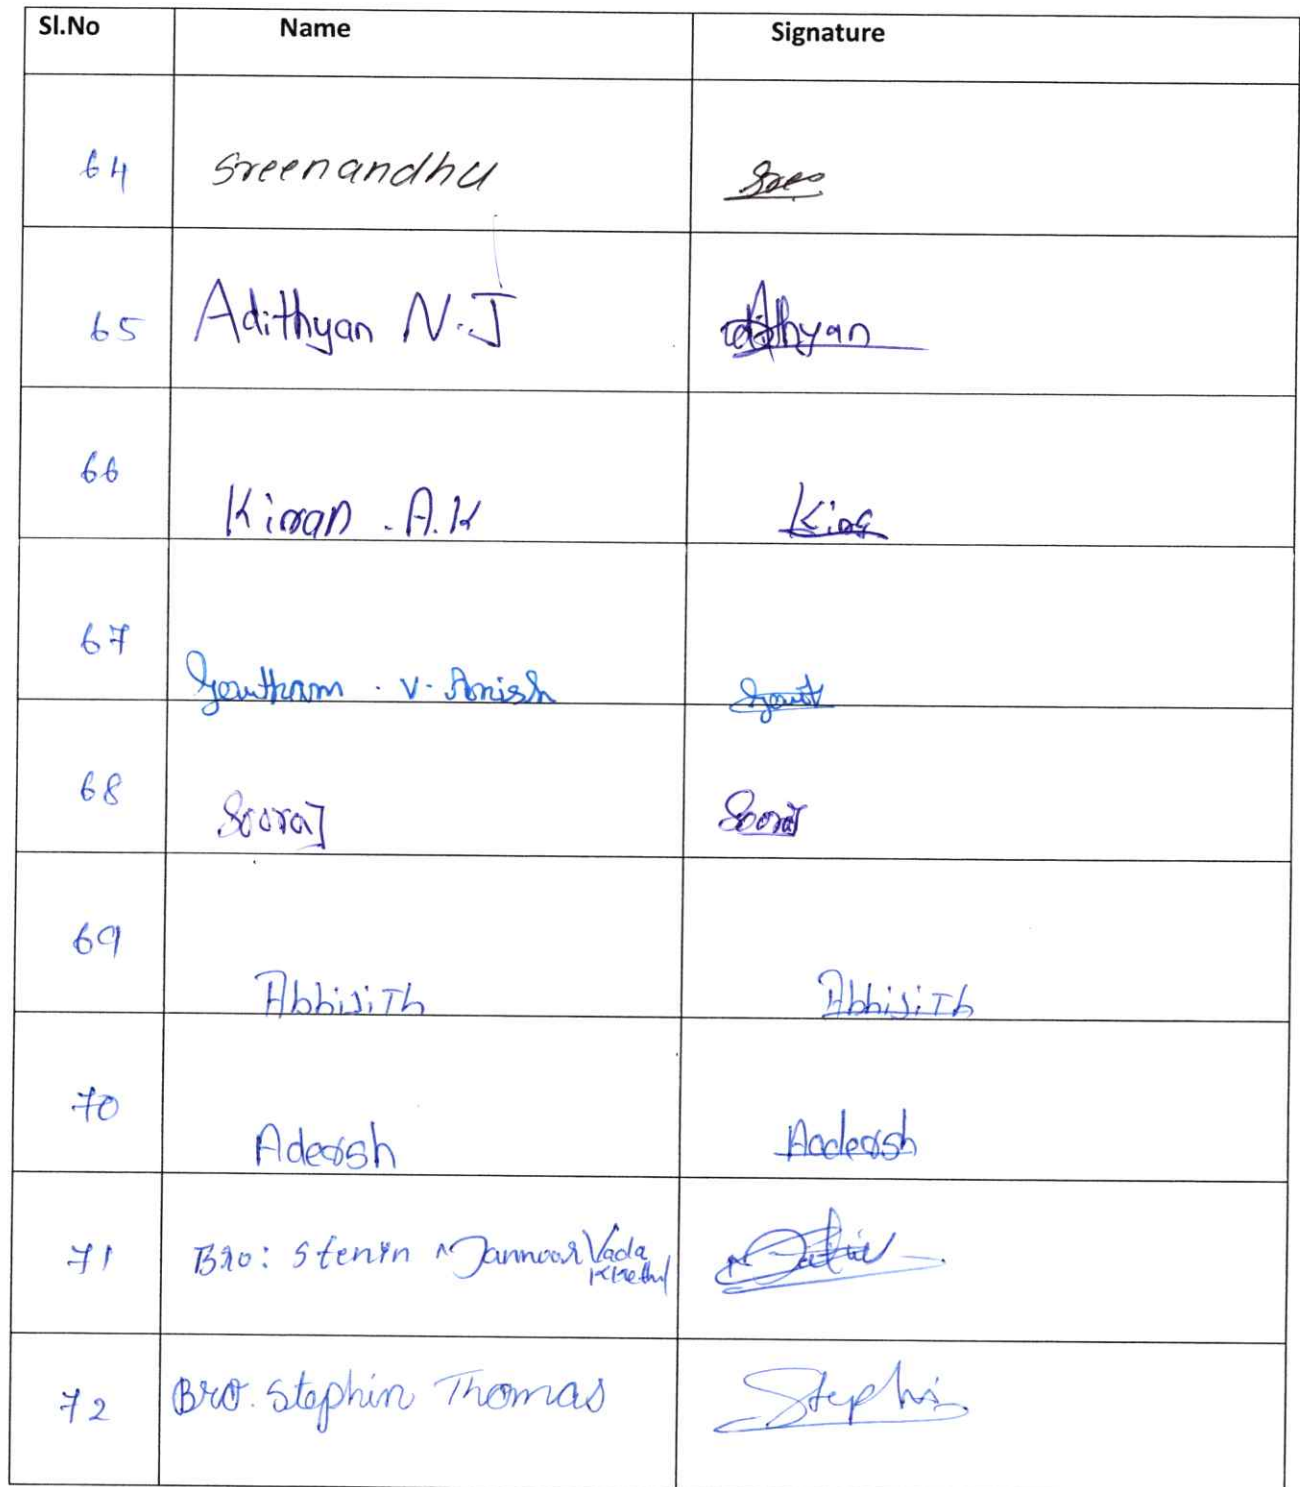 Sl.No Name Signature
64 Sreenandhu Sree
65 Adithyan N.J Adithyan
66 Kiran . A.K
67 Goutham . V. Anish Gout
68 Sooraj Sooraj
69 Abhijith Abhijith
70 Adersh Aadersh
71 Bro: Stenin Vada
72 Bro. Stephin Thomas Stephin